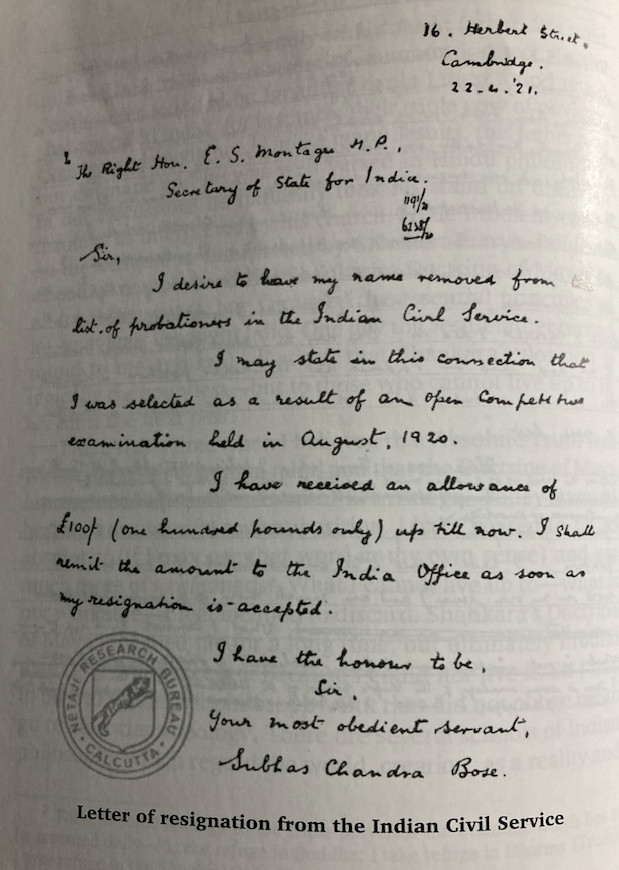 16. Herbert Street,
Cambridge.
22.4.'21.
The Right Hon. E. S. Montagu M.P.,
Secretary of State for India.
Sir,
I desire to have my name removed from
list of probationers in the Indian Civil Service.
I may state in this connection that
I was selected as a result of an open competitive
examination held in August, 1920.
I have received an allowance of
£100/- (one hundred pounds only) up till now. I shall
remit the amount to the India Office as soon as
my resignation is accepted.
I have the honour to be,
Sir,
Your most obedient servant,
Subhas Chandra Bose.
NETAJI RESEARCH BUREAU
· CALCUTTA ·
Letter of resignation from the Indian Civil Service